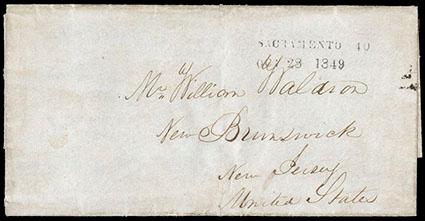 SACRAMENTO 40
Oct 28 1849
Mr William Waldron
New Brunswick
New Jersey
United States